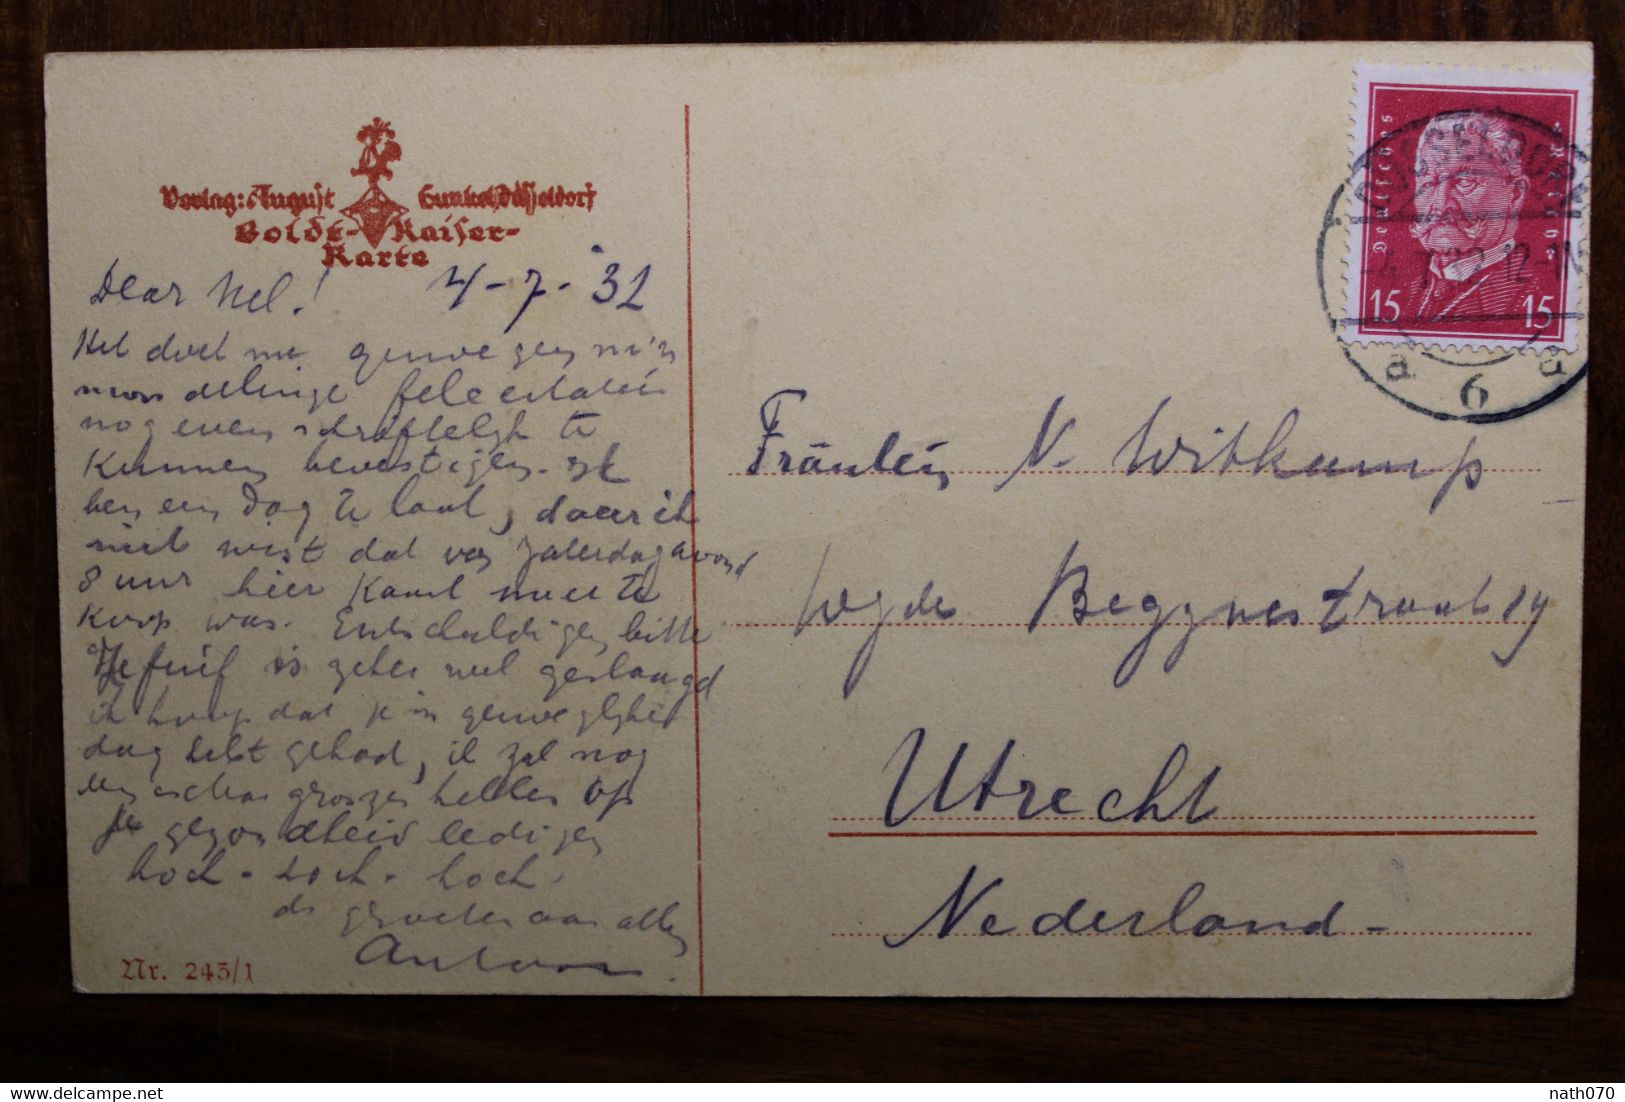 Verlag: August Gunkel, Düsseldorf
Goldé-Kaiser-
Karte
Dear Nel! 4-7-'32
Het doet me genoegen mijn
mondelinge felicitatie
nog even schriftelijk te
kunnen bevestigen. Ik
ben een dag te laat, daar ik
niet wist dat van Zaterdagavond
8 uur hier kant meer te
koop was. Entschuldigen bitte
Je fuif is zeker wel geslaagd
ik hoop dat je 'n genoeglijke
dag hebt gehad, ik zal nog
grosze helles op
je gezondheid ledigen
hoch - hoch - hoch.
de groeten aan allen
Anton
Nr. 243/1
Deutsches Reich
15 15
DÜSSELDORF
-4.7.32.12-1
6
Fräulein N. Witkamp
Wijde Begijnestraat 19
Utrecht
Nederland-
delcampe.net
nath070